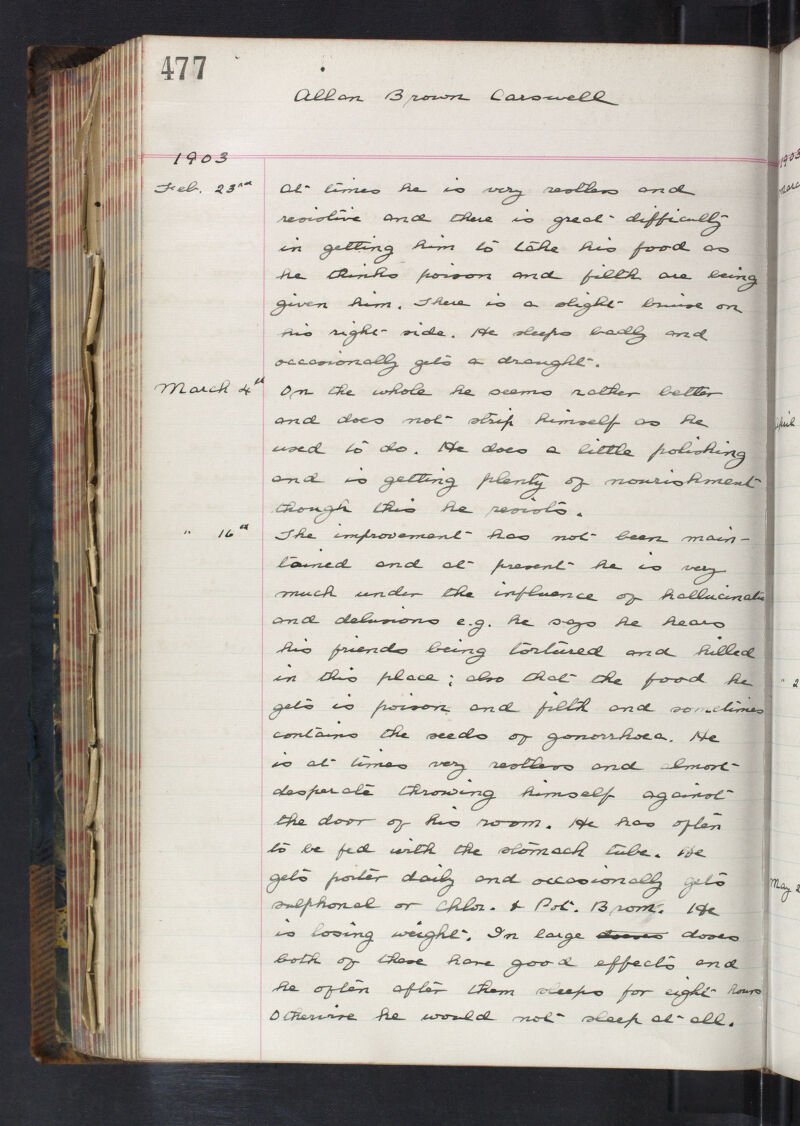 477
Allan Brown Carswell
1903
Feb. 23rd At times he is very restless and
resistive and there is great difficulty
in getting him to take his food as
he thinks poison and filth are being
given him. There is a slight bruise on
his right side. He sleeps badly and
occasionally gets a draught.
March 4th On the whole he seems rather better
and does not strip himself as he
used to do. He does a little polishing
and is getting plenty of nourishment
though this he resists.
" 16th The improvement has not been main-
tained and at present he is very
much under the influence of hallucinatio
and delusions e.g. he says he hears
his friends being tortured and killed
in this place; also that the food he
gets is poison and filth and sometimes
contains the seeds of gonorrhoea. He
is at times very restless and almost
desperate throwing himself against
the door of his room. He has often
to be fed with the stomach tube. He
gets porter daily and occasionally gets
sulphonal or Chlor. & Pot. Brom. He
is losing weight. In large doses
both of these have good effects and
he often after them sleeps for eight hours
Otherwise he would not sleep at all.
1903
April
" 2
May 2